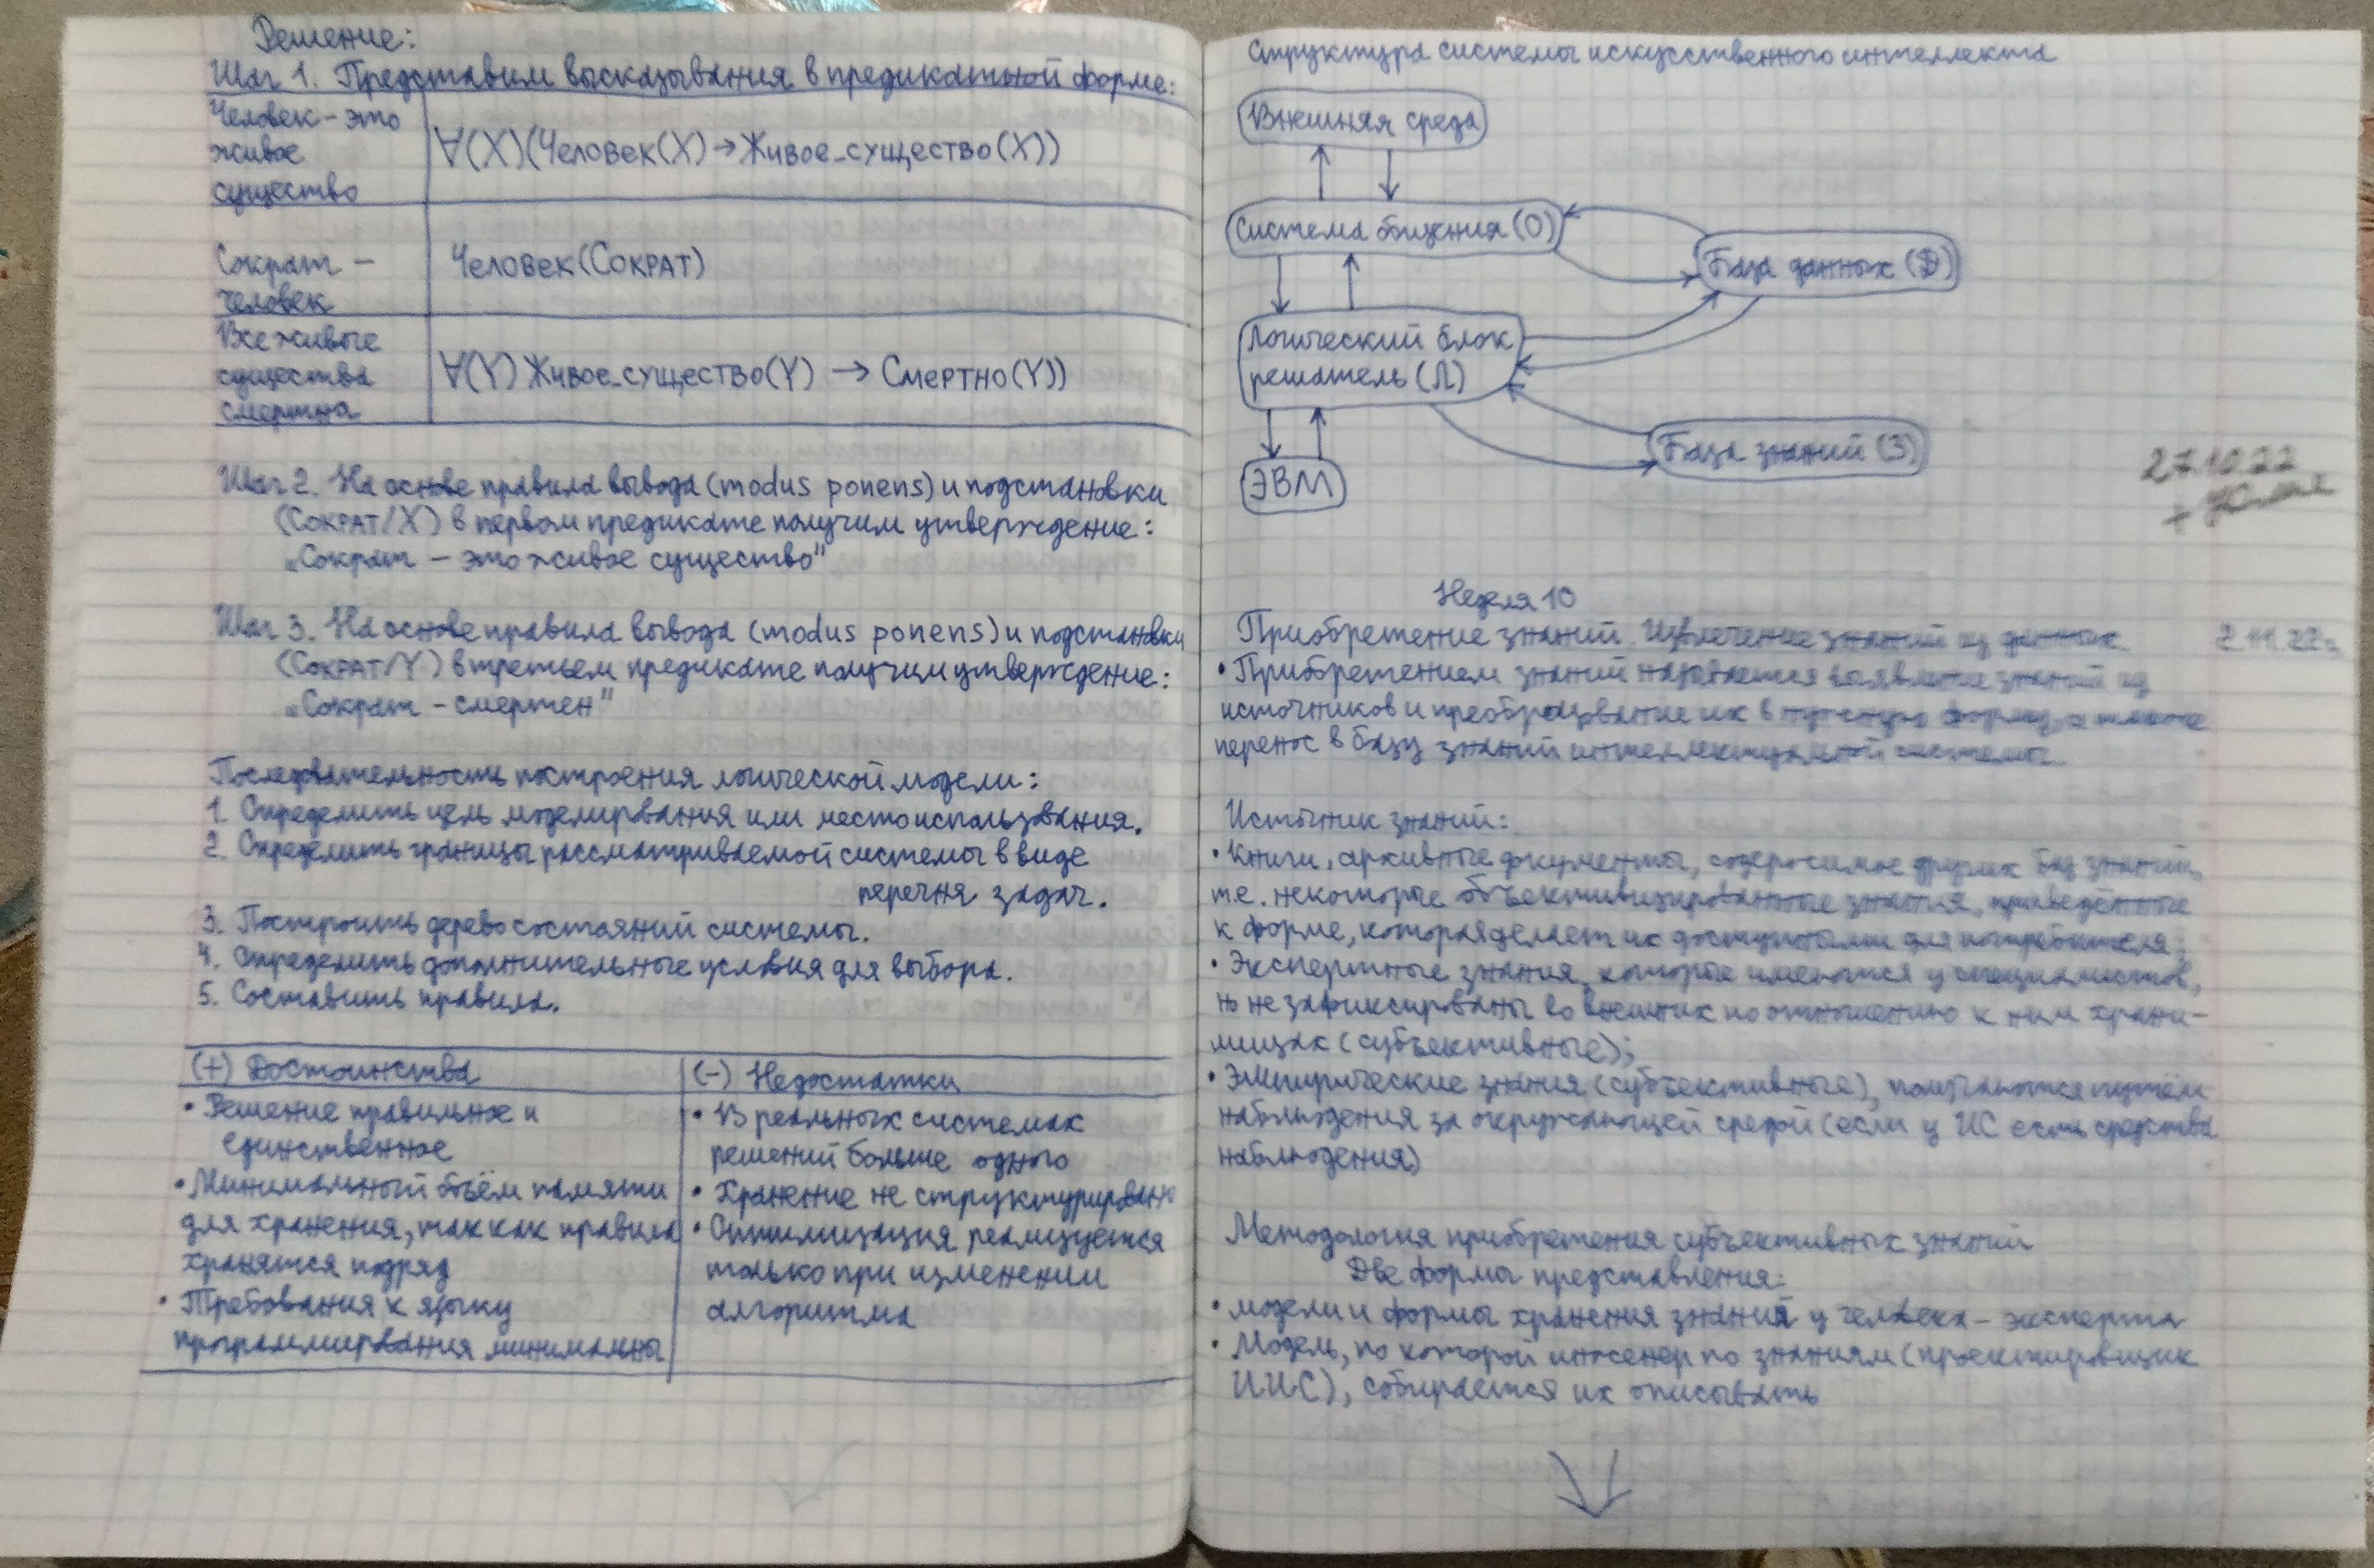 Решение:
Шаг 1. Представим высказывания в предикатной форме:
Человек – это
живое
существо
∀(X)(Человек(X)→Живое_существо(X))
Сократ –
человек
Человек(Сократ)
Все живые
существа
смертна
∀(Y) Живое_существо(Y) → Смертно(Y))
Шаг 2. На основе правила вывода (modus ponens) и подстановки
(Сократ/X) в первом предикате получим утверждение:
„Сократ – это живое существо"
Шаг 3. На основе правила вывода (modus ponens) и подстановки
(Сократ/Y) в третьем предикате получим утверждение:
„Сократ – смертен"
Последовательность построения логической модели:
1. Определить цель моделирования или место использования.
2. Определить границы рассматриваемой системы в виде
перечня задач.
3. Построить дерево состояний системы.
4. Определить дополнительные условия для выбора.
5. Составить правила.
(+) Достоинства
• Решение правильное и
единственное
• Минимальный объём памяти
для хранения, так как правила
хранятся подряд
• Требования к языку
программирования минимальны
(–) Недостатки
• В реальных системах
решений больше одного
• Хранение не структурировано
• Оптимизация реализуется
только при изменении
алгоритма
Структура системы искусственного интеллекта
Внешняя среда
Система общения (О)
База данных (Д)
Логический блок
решатель (Л)
База знаний (З)
ЭВМ
27.10.22
+
Неделя 10
Приобретение знаний. Извлечение знаний из данных.
2.11.22г.
• Приобретением знаний называется выявление знаний из
источников и преобразование их в нужную форму, а также
перенос в базу знаний интеллектуальной системы.
Источник знаний:
• Книги, архивные документы, содержимое других баз знаний,
т.е. некоторые объективизированные знания, приведённые
к форме, которая делает их доступными для потребителя;
• Экспертные знания, которые имеются у специалистов,
но не зафиксированы во внешних по отношению к ним храни-
лищах (субъективные);
• Эмпирические знания (субъективные), получаются путём
наблюдения за окружающей средой (если у ИС есть средства
наблюдения)
Методология приобретения субъективных знаний
Две формы представления:
• модели и формы хранения знаний у человека – эксперта
• Модель, по которой инженер по знаниям (проектировщик
ИИС), собирается их описывать